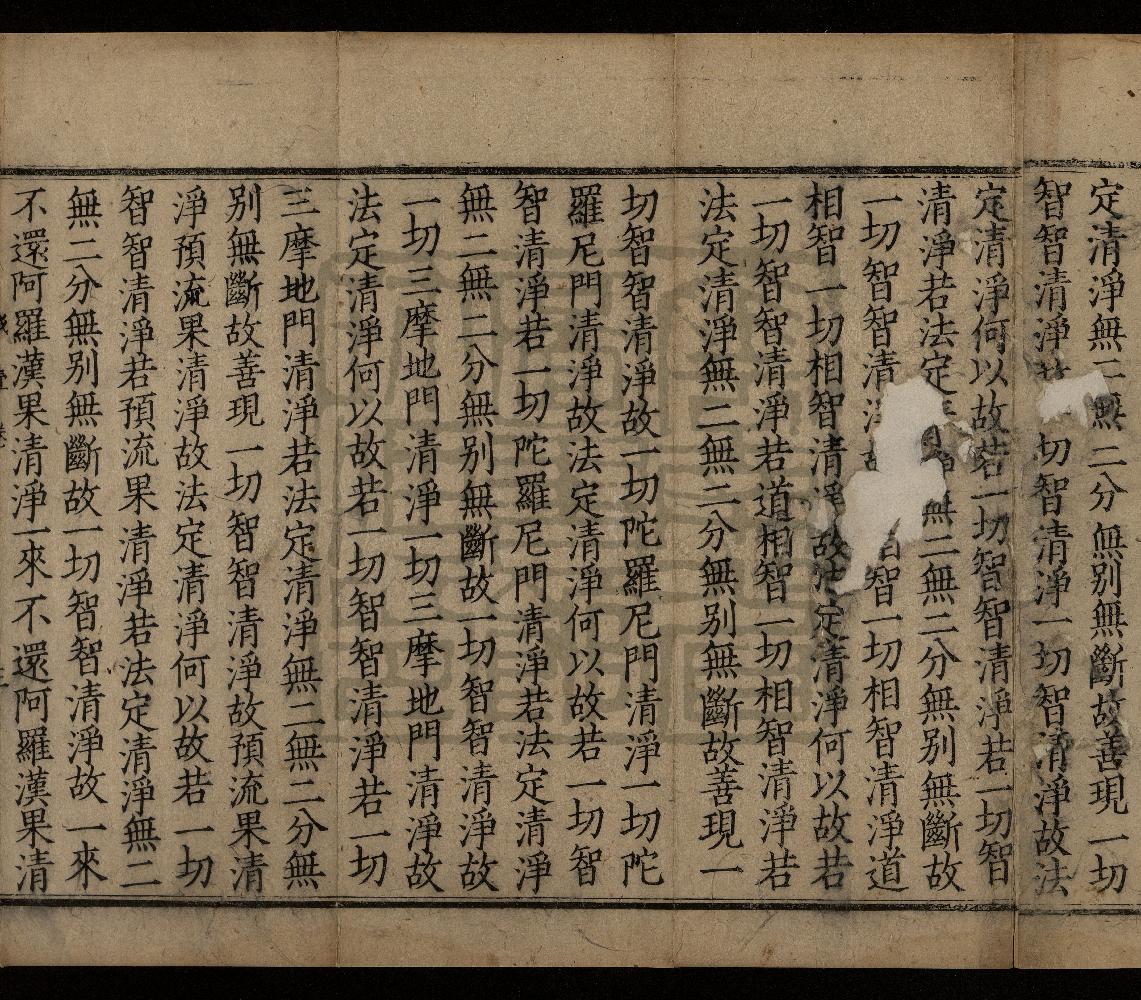 定清淨無二無二分無別無斷故善現一切
智智清淨切智清淨一切智清淨故法
定清淨何以故若一切智智清淨若一切智
清淨若法定無二無二分無別無斷故
一切智智清淨智一切相智清淨道
相智一切相智清淨故法定清淨何以故若
一切智智清淨若道相智一切相智清淨若
法定清淨無二無二分無別無斷故善現一
切智智清淨故一切陀羅尼門清淨一切陀
羅尼門清淨故法定清淨何以故若一切智
智清淨若一切陀羅尼門清淨若法定清淨
無二無二分無別無斷故一切智智清淨故
一切三摩地門清淨一切三摩地門清淨故
法定清淨何以故若一切智智清淨若一切
三摩地門清淨若法定清淨無二無二分無
別無斷故善現一切智智清淨故預流果清
淨預流果清淨故法定清淨何以故若一切
智智清淨若預流果清淨若法定清淨無二
無二分無別無斷故一切智智清淨故一來
不還阿羅漢果清淨一來不還阿羅漢果清